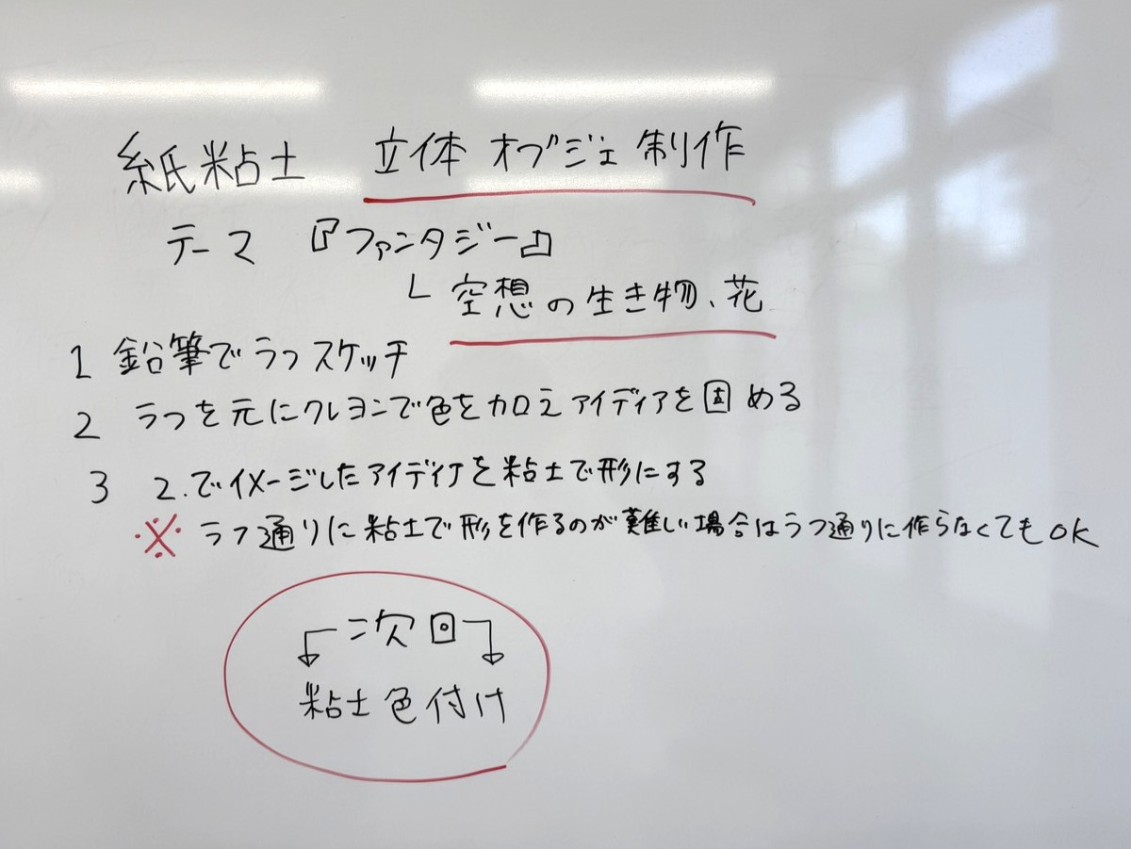 紙粘土 立体オブジェ制作
テーマ 『ファンタジー』
└ 空想の生き物、花
1 鉛筆でラフスケッチ
2 ラフを元にクレヨンで色を加えアイディアを固める
3 2.でイメージしたアイディアを粘土で形にする
※ ラフ通りに粘土で形を作るのが難しい場合はラフ通りに作らなくてもOK
次回
粘土色付け